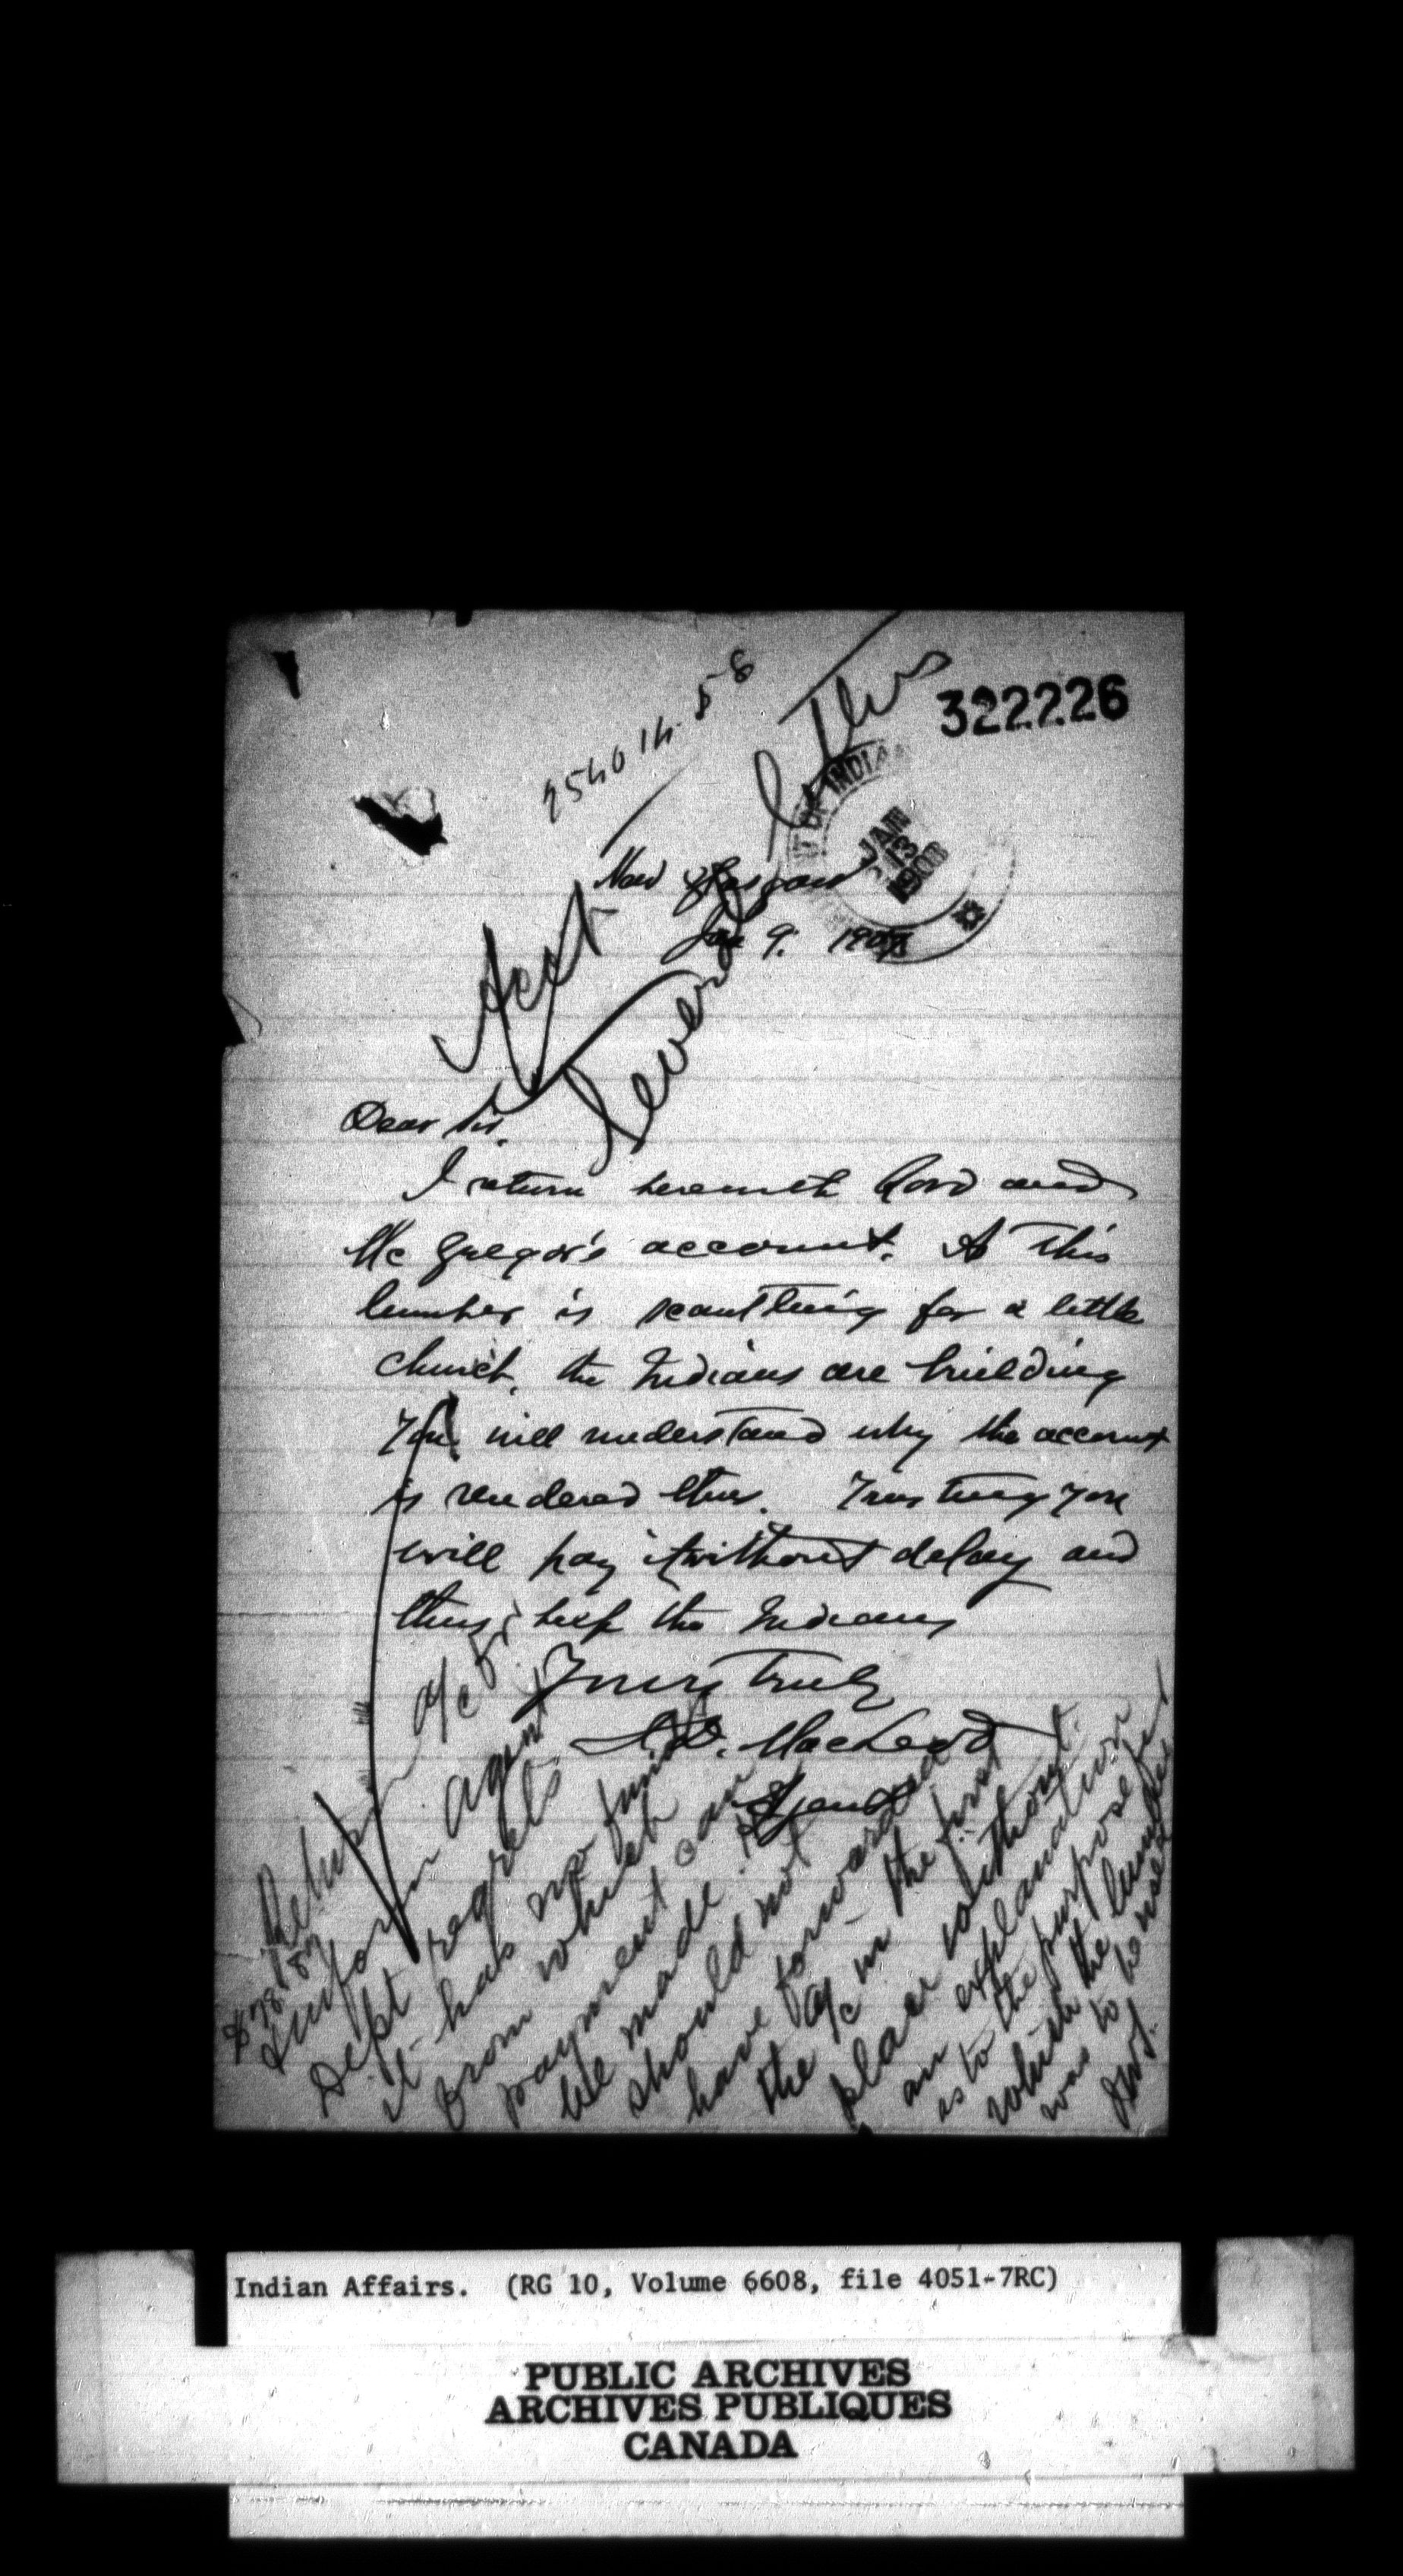 322226
JAN
13
1908
New Glasgow
Jan 9. 1908
Acct
Dear Sir,
I return herewith Lord and
McGregor's account. As this
lumber is scantling for a little
church, the Indians are building
You will understand why the account
is rendered thus. Trusting you
will pay it without delay and
thus help the Indians
Yours truly
MacLeod
Agent
Return a/c for
$78.87
& inform agent
Dept regrets
it has no funds
from which
payment can
be made. He
should not
have forwarded
the a/c in the first
place without
an explanation
as to the purpose for
which the lumber
was to be used
Indian Affairs. (RG 10, Volume 6608, file 4051-7RC)
PUBLIC ARCHIVES
ARCHIVES PUBLIQUES
CANADA